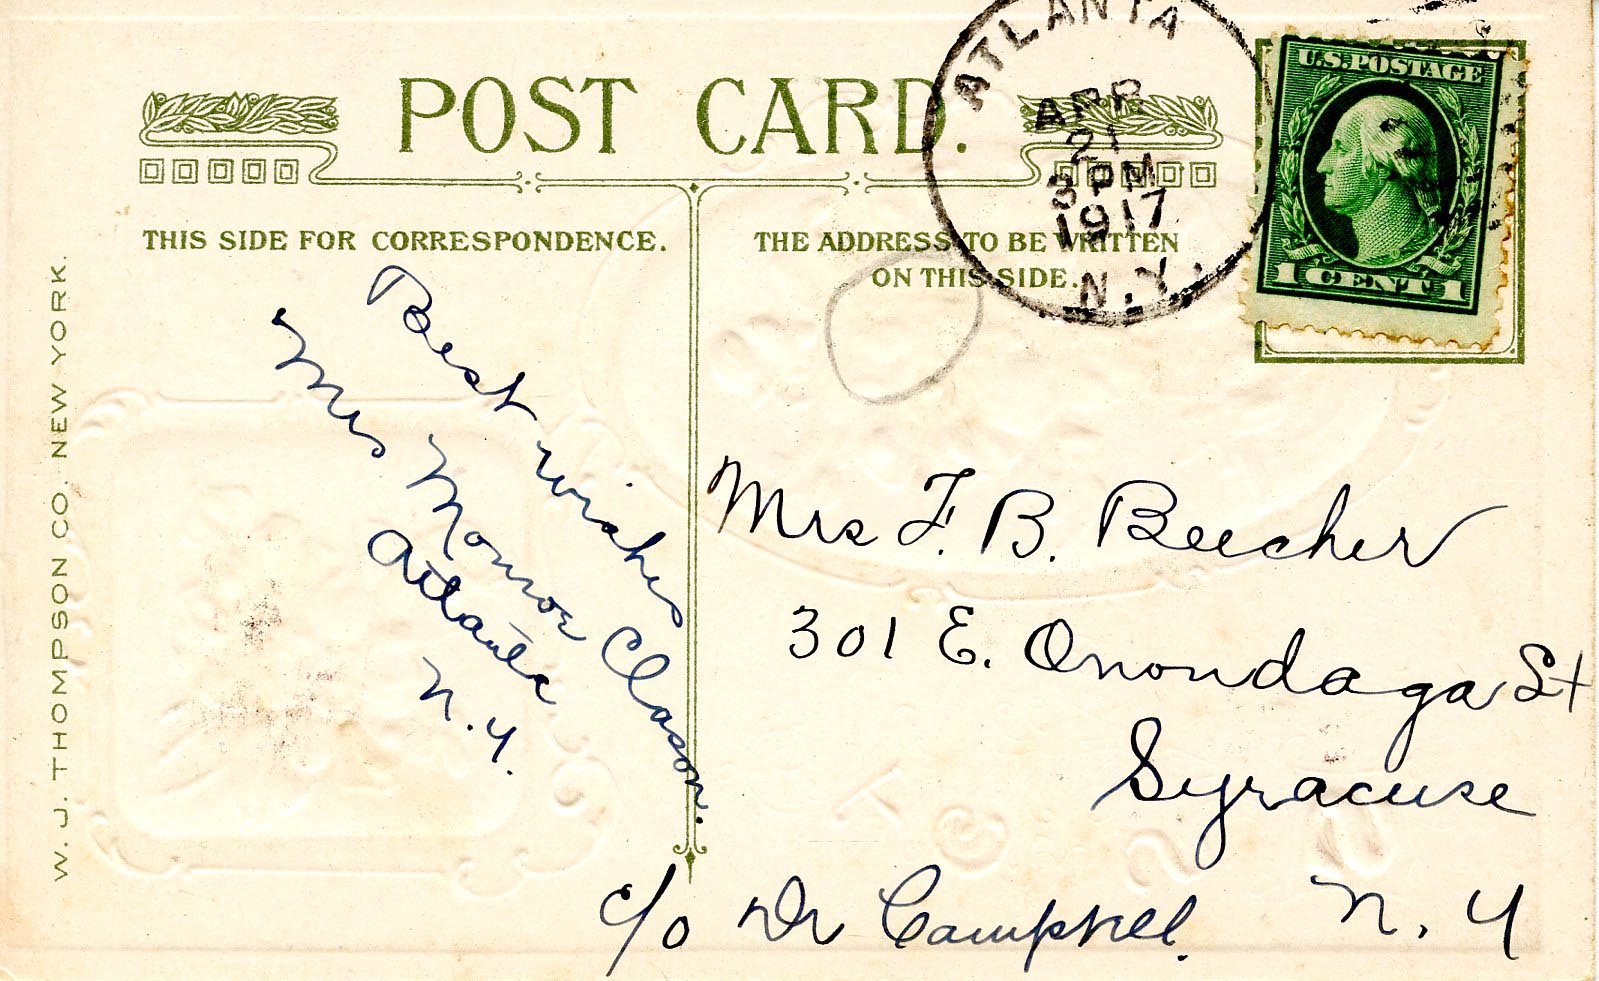 POST CARD.
THIS SIDE FOR CORRESPONDENCE.
THE ADDRESS TO BE WRITTEN
ON THIS SIDE.
W. J. THOMPSON CO. NEW YORK.
ATLANTA
APR
21
3 PM
1917
N.Y.
U.S. POSTAGE
1 CENT 1
Best wishes
Mrs Monroe Clason.
Atlanta
N.Y.
Mrs F. B. Beecher
301 E. Onondaga St
Syracuse
N. Y
c/o Dr Campbell.